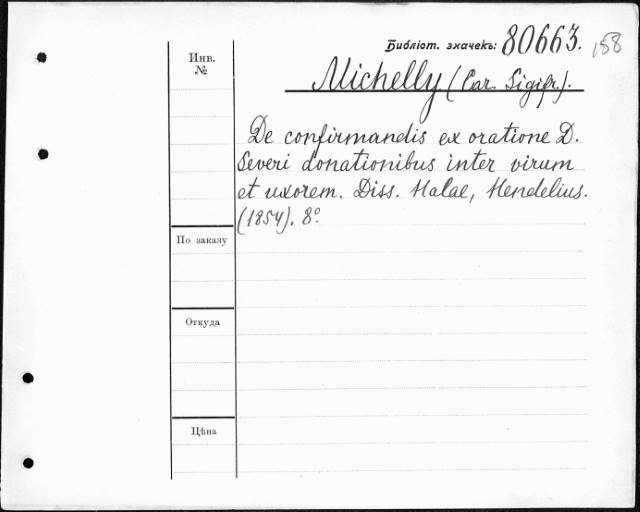 Библіот. значекъ: 80663. 158
Инв.
№
Michelly (Car. Sigifr.).
De confirmandis ex oratione D.
Severi donationibus inter virum
et uxorem. Diss. Halae, Hendelius.
(1854). 8°
По заказу
Откуда
Цѣна